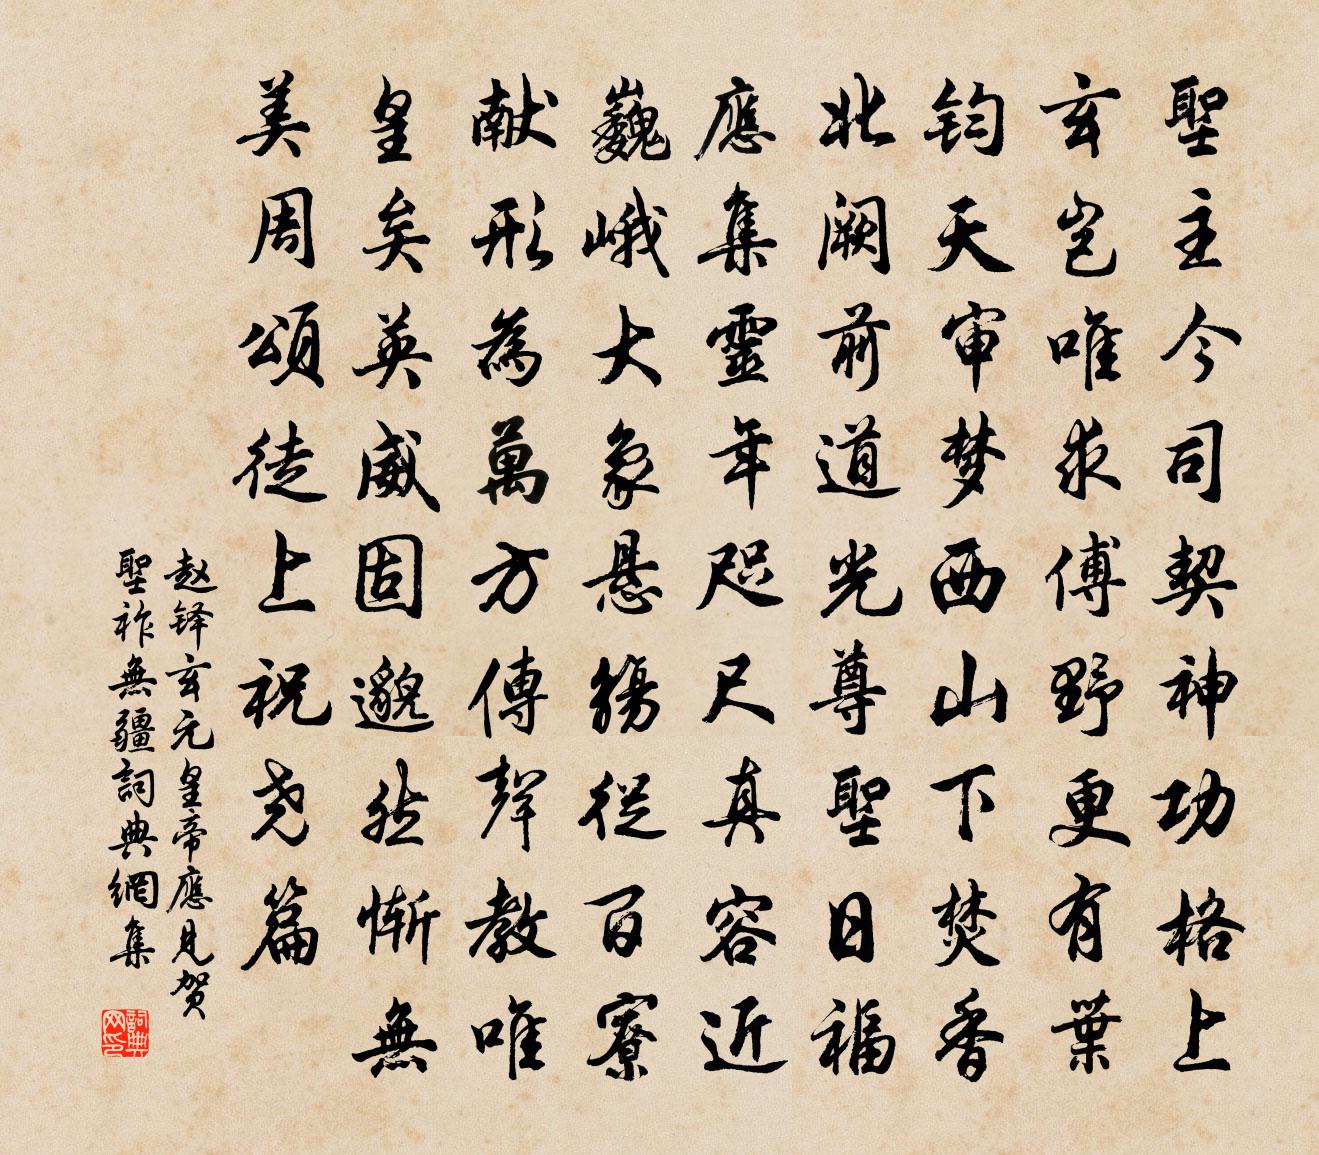 聖主今司契神功格上
玄豈唯求傅野更有葉
钧天审梦西山下焚香
北阙前道光尊聖日福
應集靈年咫尺真容近
巍峨大象悬觞從百寮
献形為萬方傳聲教唯
皇矣英威固邈然惭無
美周頌徒上祝尧篇
赵铎玄元皇帝應見贺
聖祚無疆詞典網集
詞典网印